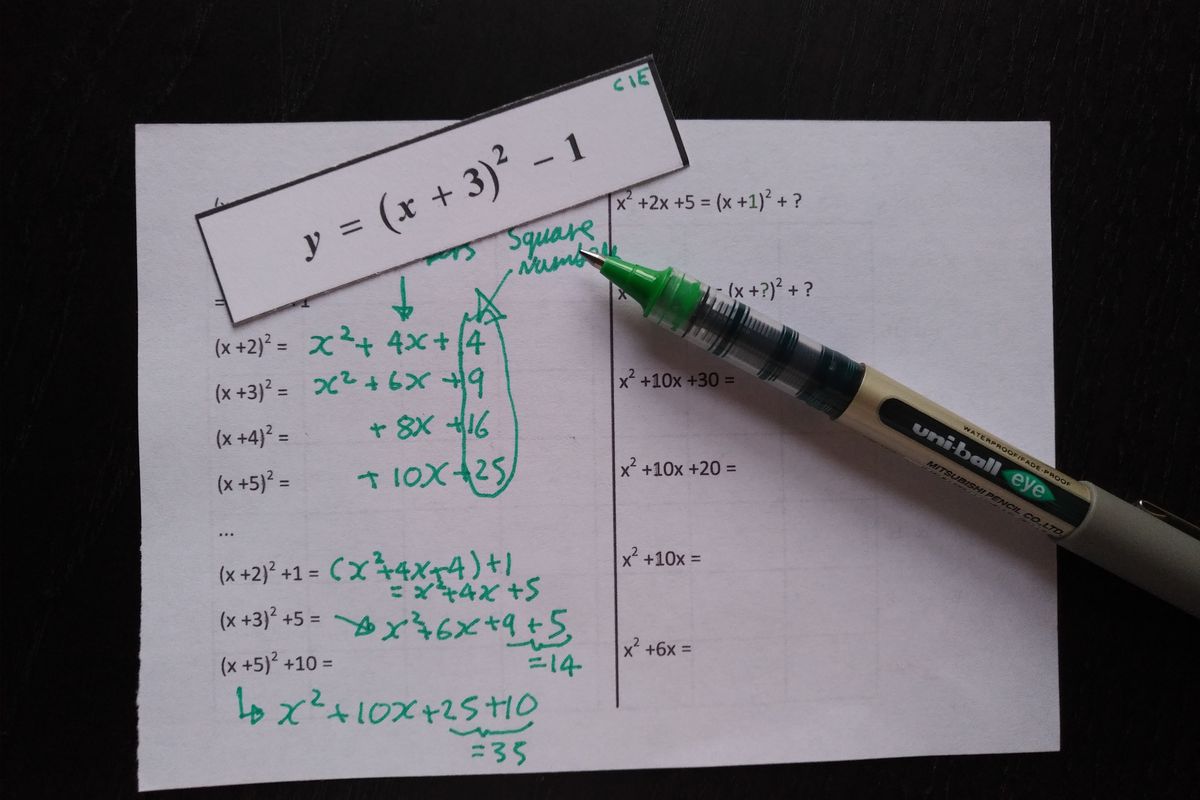 CIE
y = (x + 3)² − 1
Square
Number
(x +2)² = x² + 4x + 4
(x +3)² = x² + 6x + 9
(x +4)² = + 8x + 16
(x +5)² = + 10x + 25
...
(x +2)² +1 = (x²+4x+4)+1
= x²+4x +5
(x +3)² +5 = x²+6x+9+5
=14
(x +5)² +10 =
x²+10x+25+10
=35
x² +2x +5 = (x +1)² + ?
(x +?)² + ?
x² +10x +30 =
x² +10x +20 =
x² +10x =
x² +6x =
uni-ball eye
WATERPROOF/FADE-PROOF
MITSUBISHI PENCIL CO.,LTD.